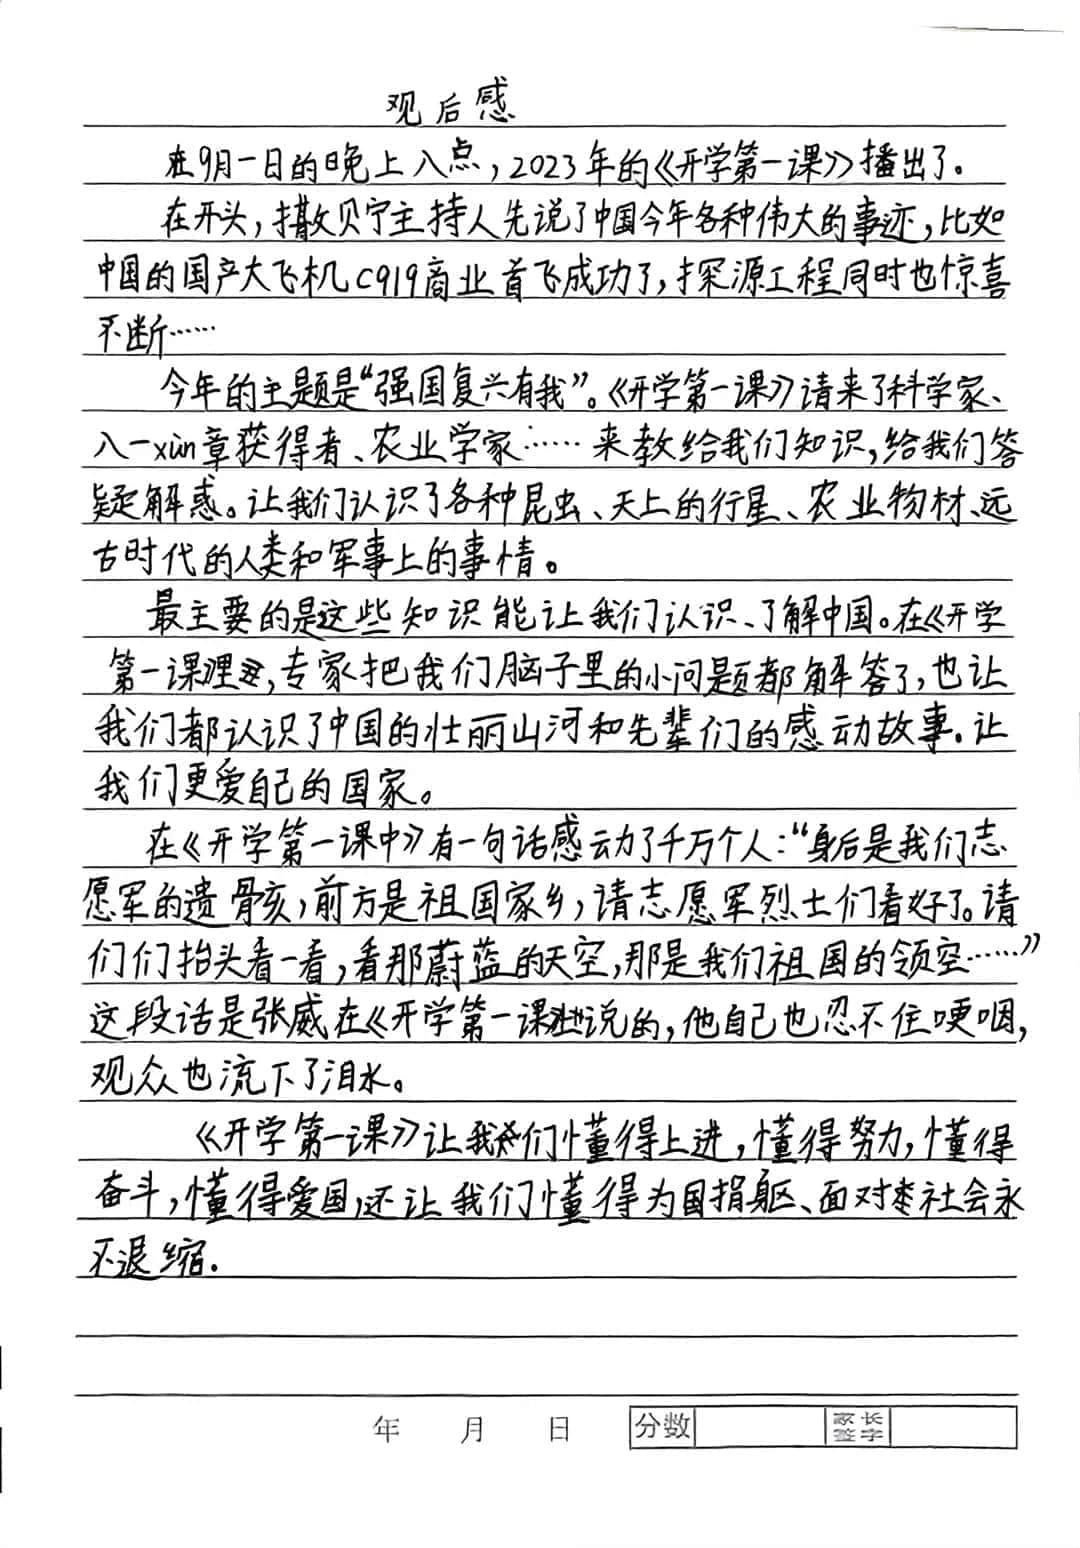 观后感
在9月一日的晚上八点，2023年的《开学第一课》播出了。
在开头，撒贝宁主持人先说了中国今年各种伟大的事迹，比如
中国的国产大飞机C919商业首飞成功了，探源工程同时也惊喜
不断……
今年的主题是“强国复兴有我”。《开学第一课》请来了科学家、
八一xūn章获得者、农业学家……来教给我们知识，给我们答
疑解惑。让我们认识了各种昆虫、天上的行星、农业物材、远
古时代的人类和军事上的事情。
最主要的是这些知识能让我们认识、了解中国。在《开学
第一课》里，专家把我们脑子里的小问题都解答了，也让
我们都认识了中国的壮丽山河和先辈们的感动故事。让
我们更爱自己的国家。
在《开学第一课中》有一句话感动了千万个人：“身后是我们志
愿军的遗骨亥，前方是祖国家乡，请志愿军烈士们看好了。请
们们抬头看一看，看那蔚蓝的天空，那是我们祖国的领空……”
这段话是张威在《开学第一课》说的，他自己也忍不住哽咽，
观众也流下了泪水。
《开学第一课》让我们懂得上进，懂得努力，懂得
奋斗，懂得爱国，还让我们懂得为国捐躯、面对社会永
不退缩.
年 月 日 分数 家长签字